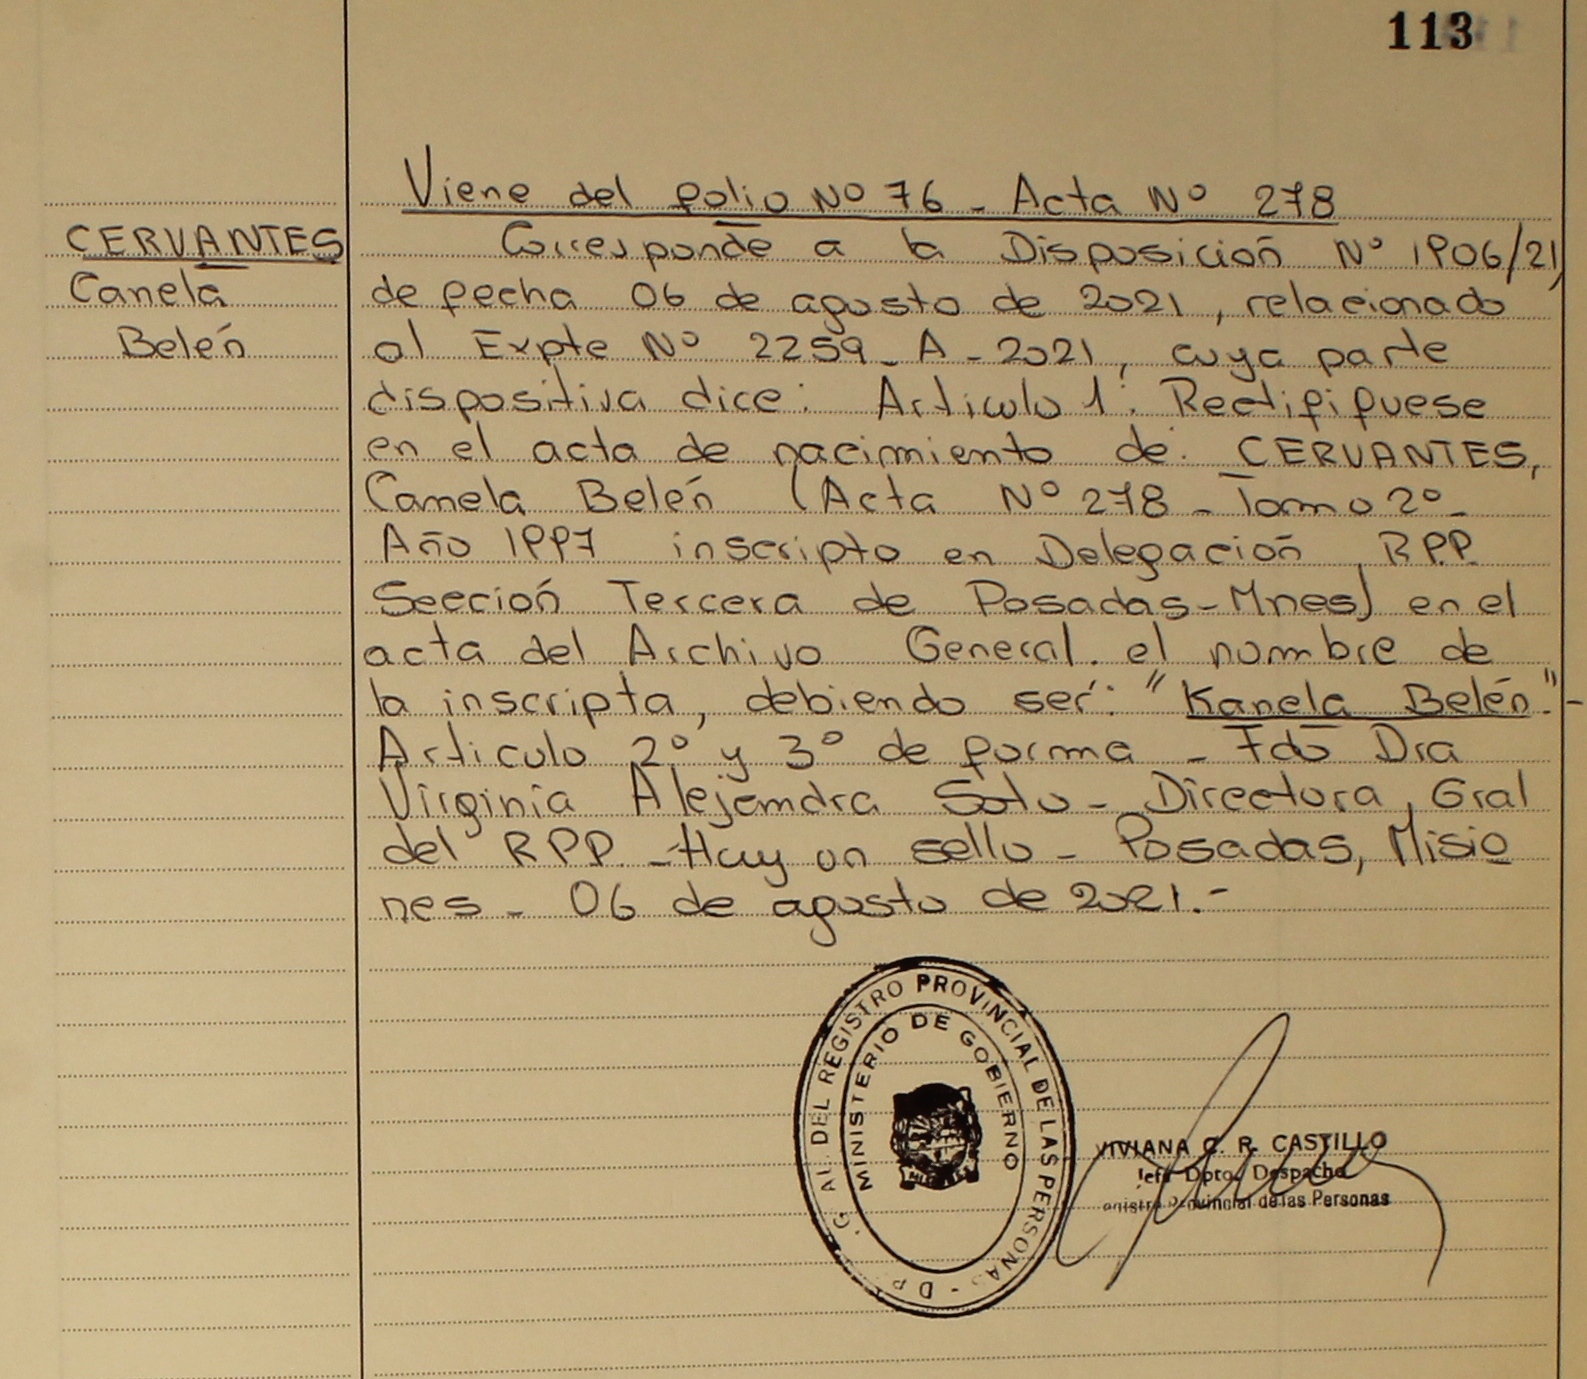 113
Viene del folio Nº 76 - Acta Nº 278
CERVANTES
Canela
Belén
Corresponde a la Disposición Nº 1906/21,
de fecha 06 de agosto de 2021, relacionado
al Expte Nº 2259 - A - 2021, cuya parte
dispositiva dice: Articulo 1: Rectififuese
en el acta de nacimiento de: CERVANTES,
Canela Belén (Acta Nº 278 - Tomo 2º -
Año 1997 inscripto en Delegación RPP
Sección Tercera de Posadas - Mnes) en el
acta del Archivo General. el nombre de
la inscripta, debiendo ser: "Kanela Belén". -
Articulo 2º y 3º de forma - Fdo Dra
Virginia Alejandra Soto - Directora Gral
del RPP - Hay un sello - Posadas, Misio
nes - 06 de agosto de 2021. -
AL DEL REGISTRO PROVINCIAL DE LAS PERSONAS - D P
MINISTERIO DE GOBIERNO
VIVIANA C. R. CASTILLO
Jefe Dpto. Despacho
Provincial de las Personas